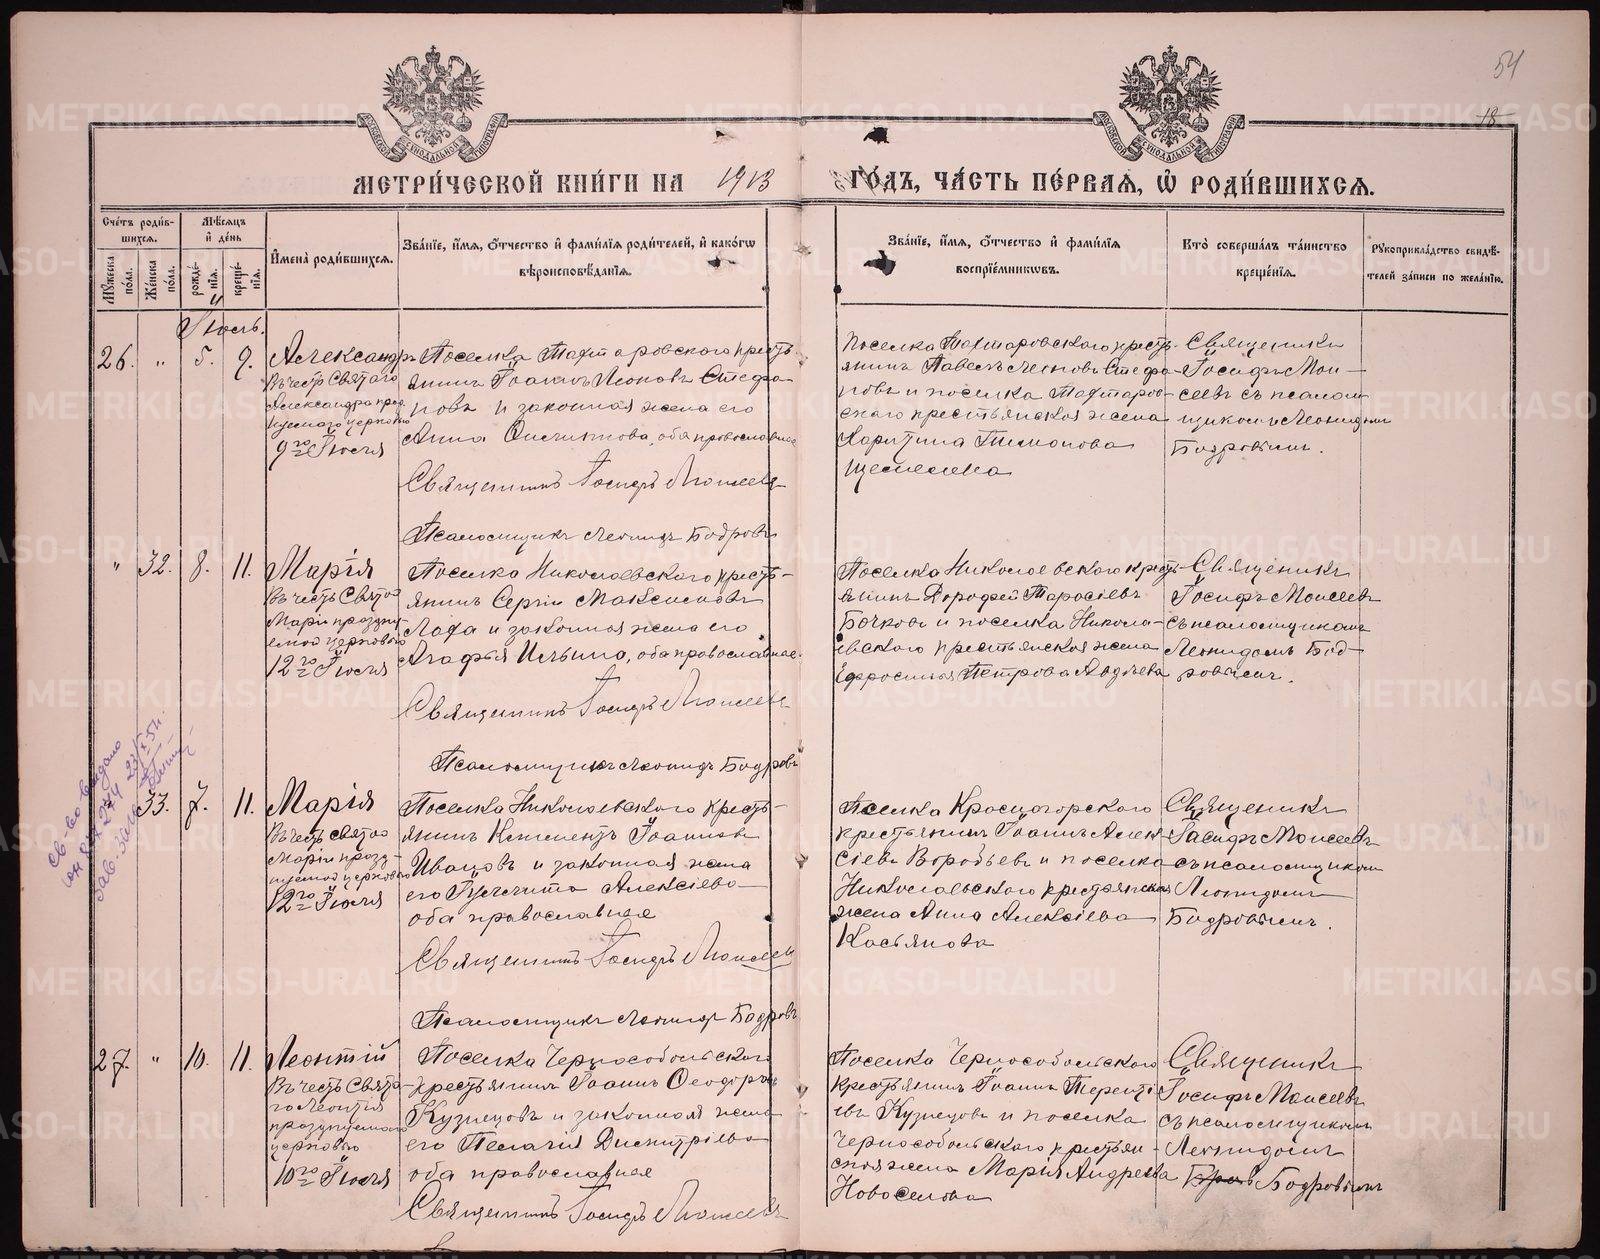 54
18
МЕТРИ́ЧЕСКОЙ КНИ́ГИ НА 1913 ГО́ДЪ, ЧА́СТЬ ПЕ́РВАЯ, Ѡ РОДИ́ВШИХСЯ.
Сче́тъ роди́в-
шихся.
Мѣ́сяцъ
и҆ де́нь
Мꙋ́жеска
по́ла.
Же́нска
по́ла.
рожде́-
нїя.
креще́-
нїя.
И҆мена̀ роди́вшихся.
Зва́нїе, и҆́мя, ѻ҆́тчество и҆ фами́лїя роди́телей, и҆ како́гѡ
вѣроисповѣ́данїя.
Зва́нїе, и҆́мя, ѻ҆́тчество и҆ фами́лїя
воспрїе́мникѡвъ.
Кто̀ соверша́лъ та́инство
креще́нїя.
Рꙋкоприкла́дство свидѣ́-
телей за́писи по жела́нїю.
Іюль.
26. " 5. 9.
Александръ
Въ честь Святаго
Александра праз
нуемаго церковію
9го Іюля
Поселка Тахтаровскаго кресть-
янинъ Іоаннъ Леоновъ Стефа-
новъ и законная жена его
Анна Онисимова, оба православные
Священникъ Іосифъ Моисеевъ
Псаломщикъ Леонидъ Бодровъ
Поселка Тахтаровскаго кресть-
янинъ Павелъ Леоновъ Стефа-
новъ и поселка Тахтаров-
скаго крестьянская жена
Харитина Тимонова
Священникъ
Іосифъ Мои-
сеевъ съ псалом
щикомъ Леонидомъ
Бодровымъ.
" 32. 8. 11.
Марія
Въ честь Святой
Маріи праздну-
емой церковью
12го Іюля
Поселка Николаевскаго кресть-
янинъ Сергій Максимовъ
Лада и законная жена его
Агафья Ильина, оба православные.
Священникъ Іосифъ Моисеевъ
Псаломщикъ Леонидъ Бодровъ
Поселка Николаевскаго кресть-
янинъ Дорофей Тарасіевъ
Бочковъ и поселка Никола-
евскаго крестьянская жена
Ефросинья Петрова Авдѣева
Священникъ
Іосифъ Моисеевъ
съ псаломщикомъ
Леонидомъ Бод-
ровымъ.
св-во выдано
23/X 54
33. 7. 11.
Марія
Въ честь Святой
Маріи празд-
нуемой церковью
12го Іюля
Поселка Николаевскаго кресть-
янинъ Климентъ Іоанновъ
Ивановъ и законная жена
его Гликерія Алексіева
оба православные
Священникъ Іосифъ Моисеевъ
Псаломщикъ Леонидъ Бодровъ
Поселка Красногорскаго
крестьянинъ Іоаннъ Алек-
сіевъ Воробьевъ и поселка
Николаевскаго крестьянская
жена Анна Алексіева
Касьянова
Священникъ
Іосифъ Моисеевъ
съ псаломщикомъ
Леонидомъ
Бодровымъ.
27. " 10. 11.
Леонтій
Въ честь Свята-
го Леонтія
празднуемаго
церковью
10го Іюля
Поселка Черноcобольскаго
крестьянинъ Іоаннъ Ѳеодоровъ
Кузнецовъ и законная жена
его Пелагія Димитріева
оба православные
Священникъ Іосифъ Моисеевъ
Поселка Черноcобольскаго
крестьянинъ Іоаннъ Теренті-
евъ Кузнецовъ и поселка
Черноcобольскаго крестьян-
ская жена Марія Андреева
Новоселова
Священникъ
Іосифъ Моисеевъ
съ псаломщикомъ
Леонидомъ
Бодровымъ
METRIKI.GASO-URAL.RU